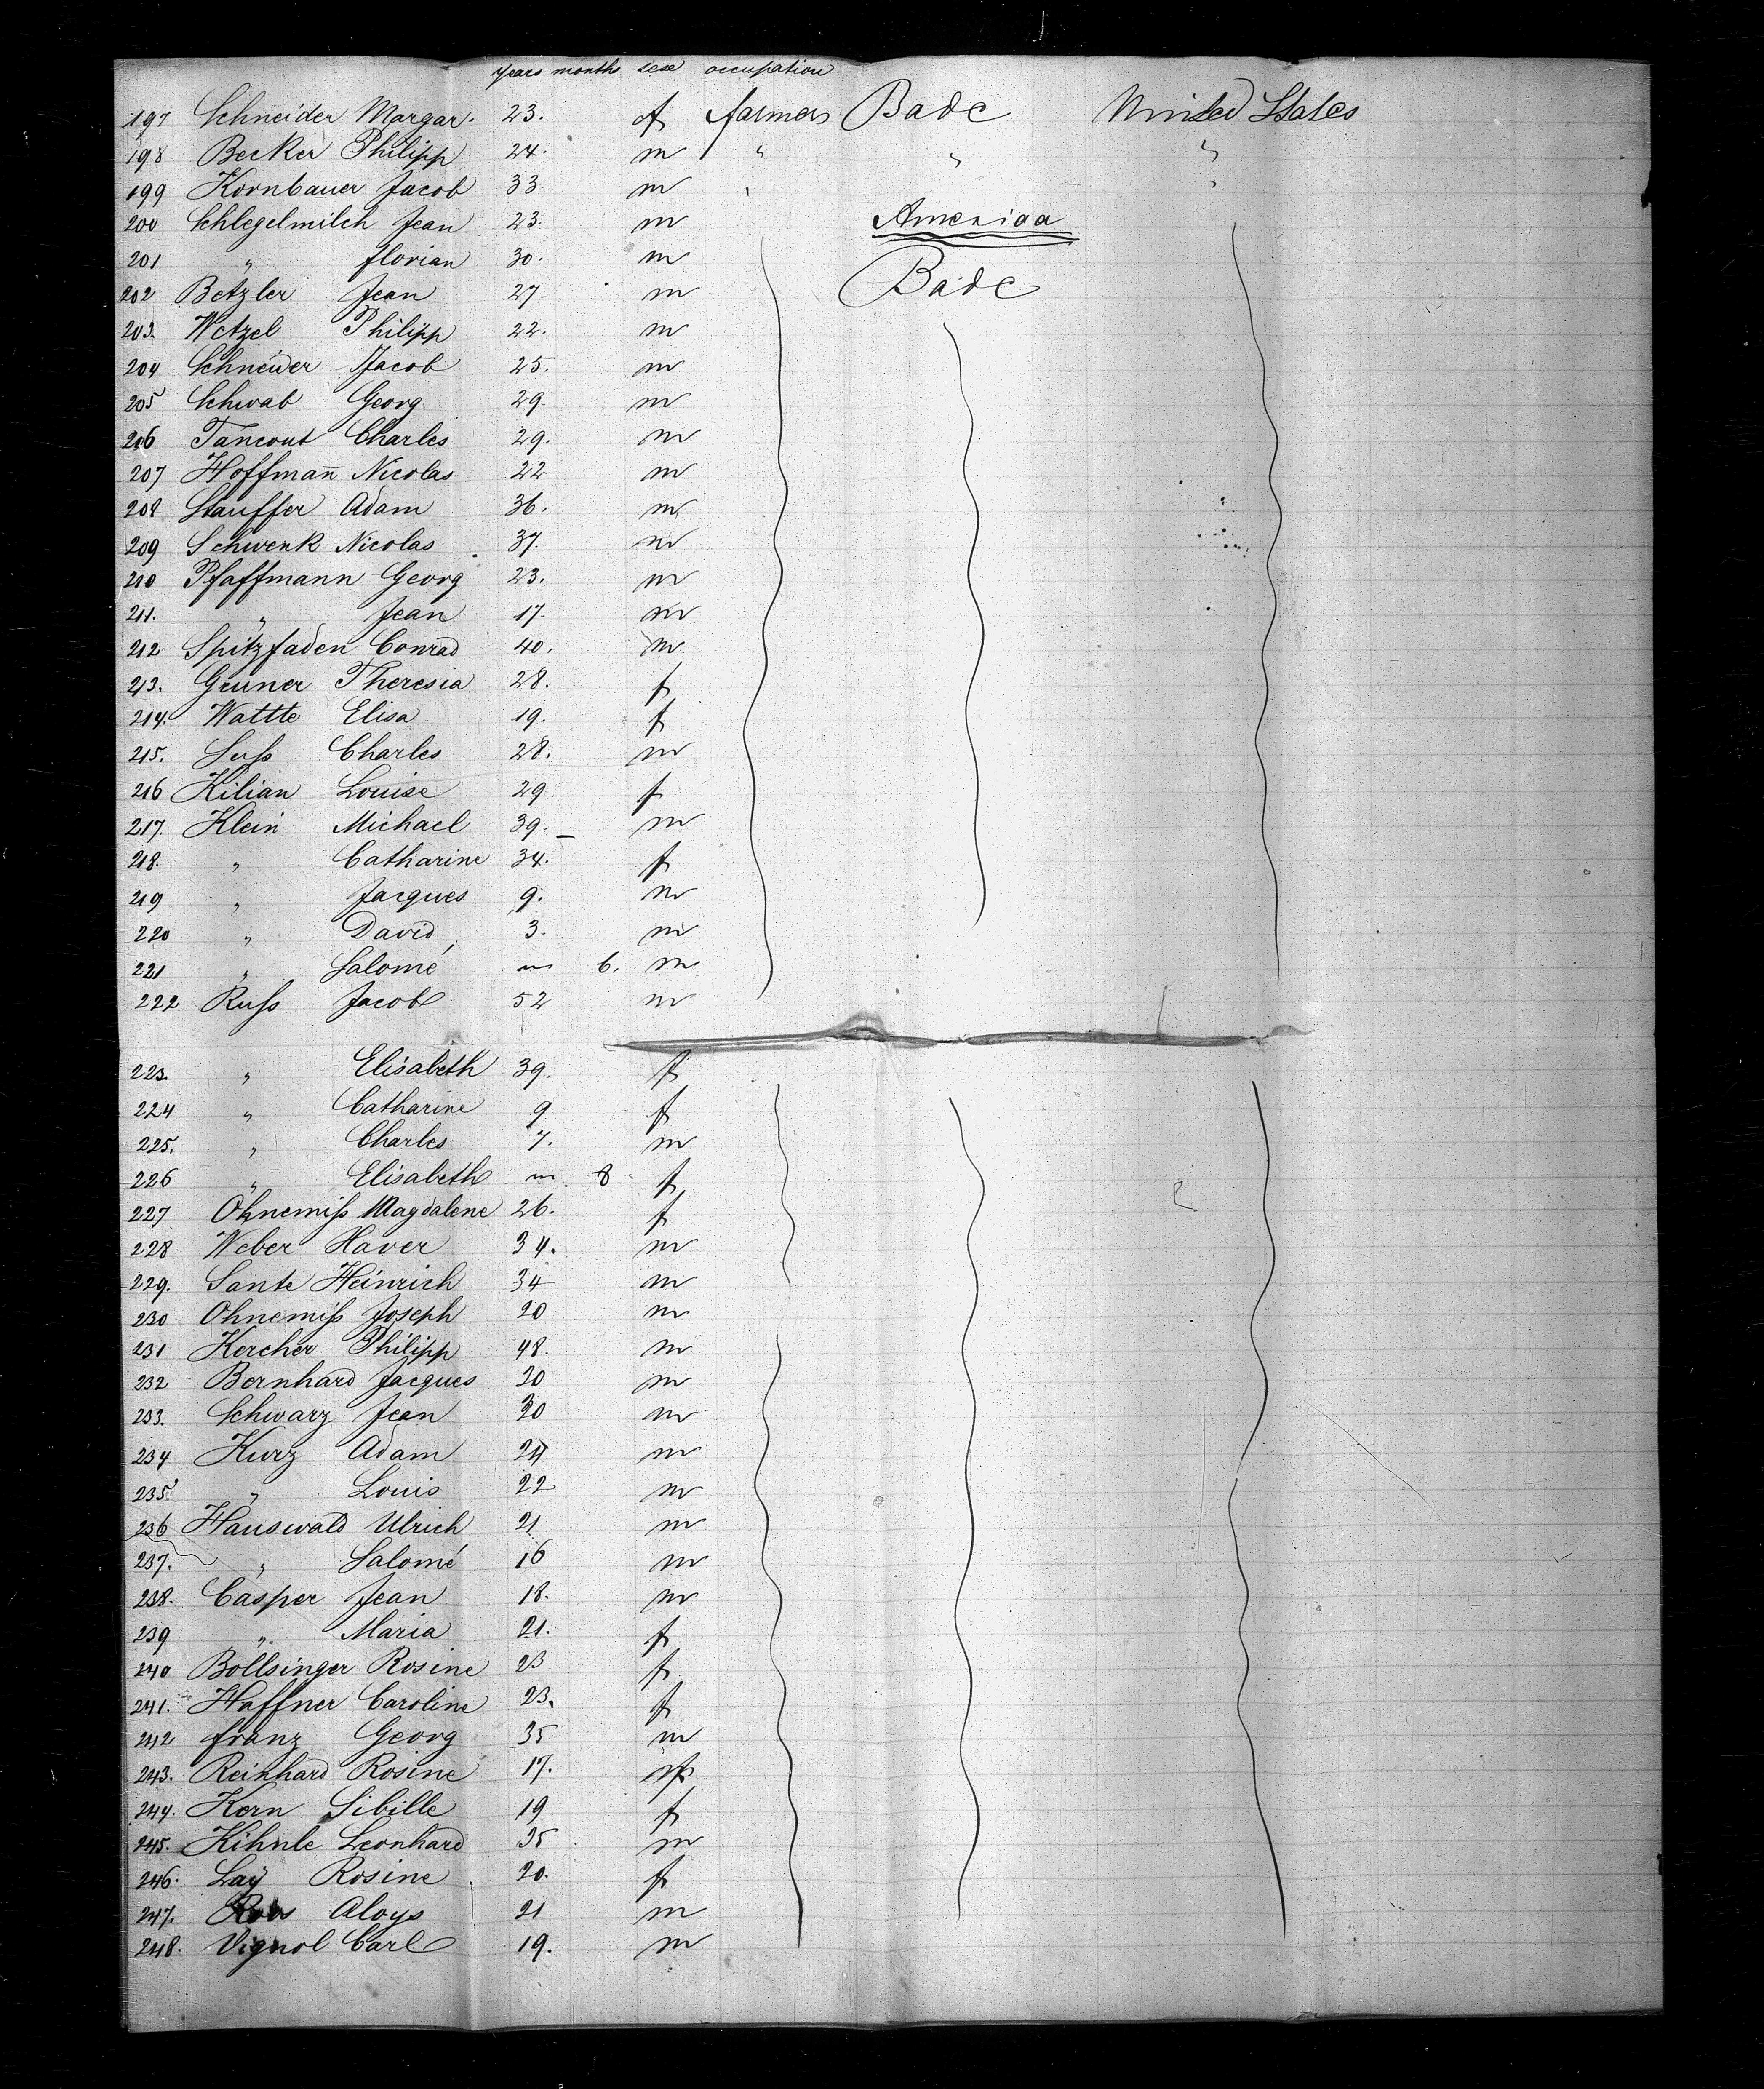 years months sexe occupation
197 Schneider Margar. 23. f farmers Bade United States
198 Becker Philipp 24. m " " "
199 Kornbauer Jacob 33. m " "
200 Schlegelmilch Jean 23. m America
201 " florian 30. m
202 Betzler Jean 27 m Bade
203. Wetzel Philipp 22. m
204 Schneider Jacob 25. m
205 Schwab Georg 29. m
206 Tancout Charles 29. m
207 Hoffmañ Nicolas 22 m
208 Stauffer Adam 36. m
209 Schwenk Nicolas 37. m
210 Pfaffmann Georg 23. m
211. " Jean 17. m
212 Spitzfaden Conrad 40. m
213. Geuner Theresia 28. f
214. Wattte Elisa 19. f
215. Suß Charles 28. m
216 Kilian Louise 29 f
217. Klein Michael 39. – m
218. " Catharine 34. f
219 " Jacques 9. m
220 " David 3. m
221 " Salomé " 6. m
222 Ruß Jacob 52 m
223. " Elisabeth 39. f
224 " Catharine 9 f
225. " Charles 7. m
226 " Elisabeth " 8 f
227 Ohnemiß Magdalene 26. f
228 Weber Xaver 34. m
229. Sante Heinrich 34 m
230 Ohnemiß Joseph 20 m
231 Kercher Philipp 48. m
232 Bernhard Jacques 20 m
233. Schwarz Jean 30 m
234 Kurz Adam 24 m
235. " Louis 22 m
236 Hauswald Ulrich 21 m
237. " Salomé 16 m
238. Casper Jean 18. m
239 " Maria 21. f
240 Bollsinger Rosine 23 f
241. Haffner Caroline 23. f
242 franz Georg 35 m
243. Reinhard Rosine 17. f
244. Kern Sibille 19 f
245. Kihnle Leonhard 35 m
246. Laÿ Rosine 20. f
247. Aloys 21 m
248. Vignol Carl 19. m